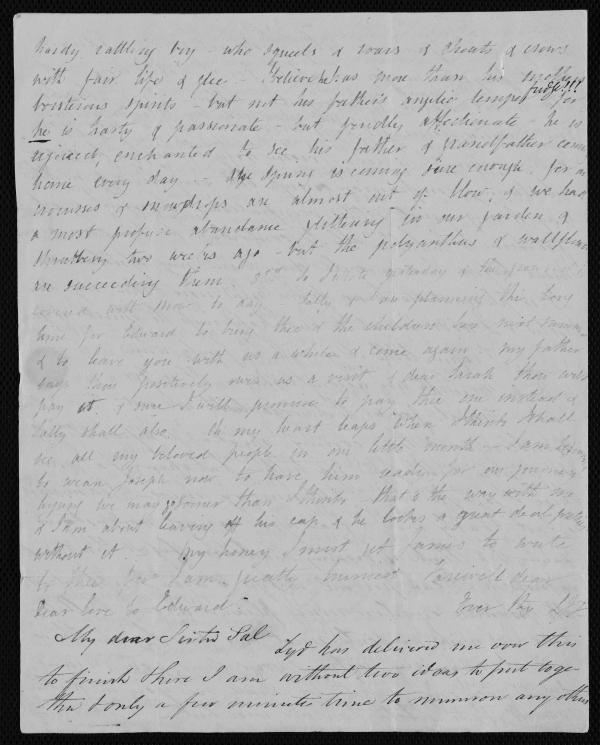 hardy rattling boy - who squeels & roars & shouts & crows
with fair life & glee - I believe he has more than his mother's
boisterious spirits - but not his father's angelic temper fudge!!! for
he is hasty & passionate - but fondly affectionate - he is
rejoiced, enchanted to see his father & grandfather come
home every day - The spring is coming sure enough, for our
crocusses & snowdrops are almost out of blow, & we had
a most profuse abundance glittering in our garden &
shrubbery two weeks ago - but the polyanthus & wallflower
are succeeding them. to yesterday & the
covered with snow to day Sally & I are planning this long
time for Edward to bring thee & the children here next summer
& to leave you with us a while & come again - my father
says thou positively owes us a visit & dear Sarah thou will
pay it & sure I will promise to pay thee one instead &
Sally shall also. Oh my heart leaps when I think I shall
see all my beloved people in one little month - I am
to wean Joseph now to have him ready for our journey
hoping we may go sooner than I think - that is the way with me
& I am about leaving off his cap & he looks a great deal prettier
without it. My honey I must get James to write
to thee for I am greatly hurried Farewell dear
Dear love to Edward - Ever thy
My dear Sister Sal
Lyd has delivered me over this
to finish & here I am without two ideas to put toge-
ther & only a few minutes time to summon any other